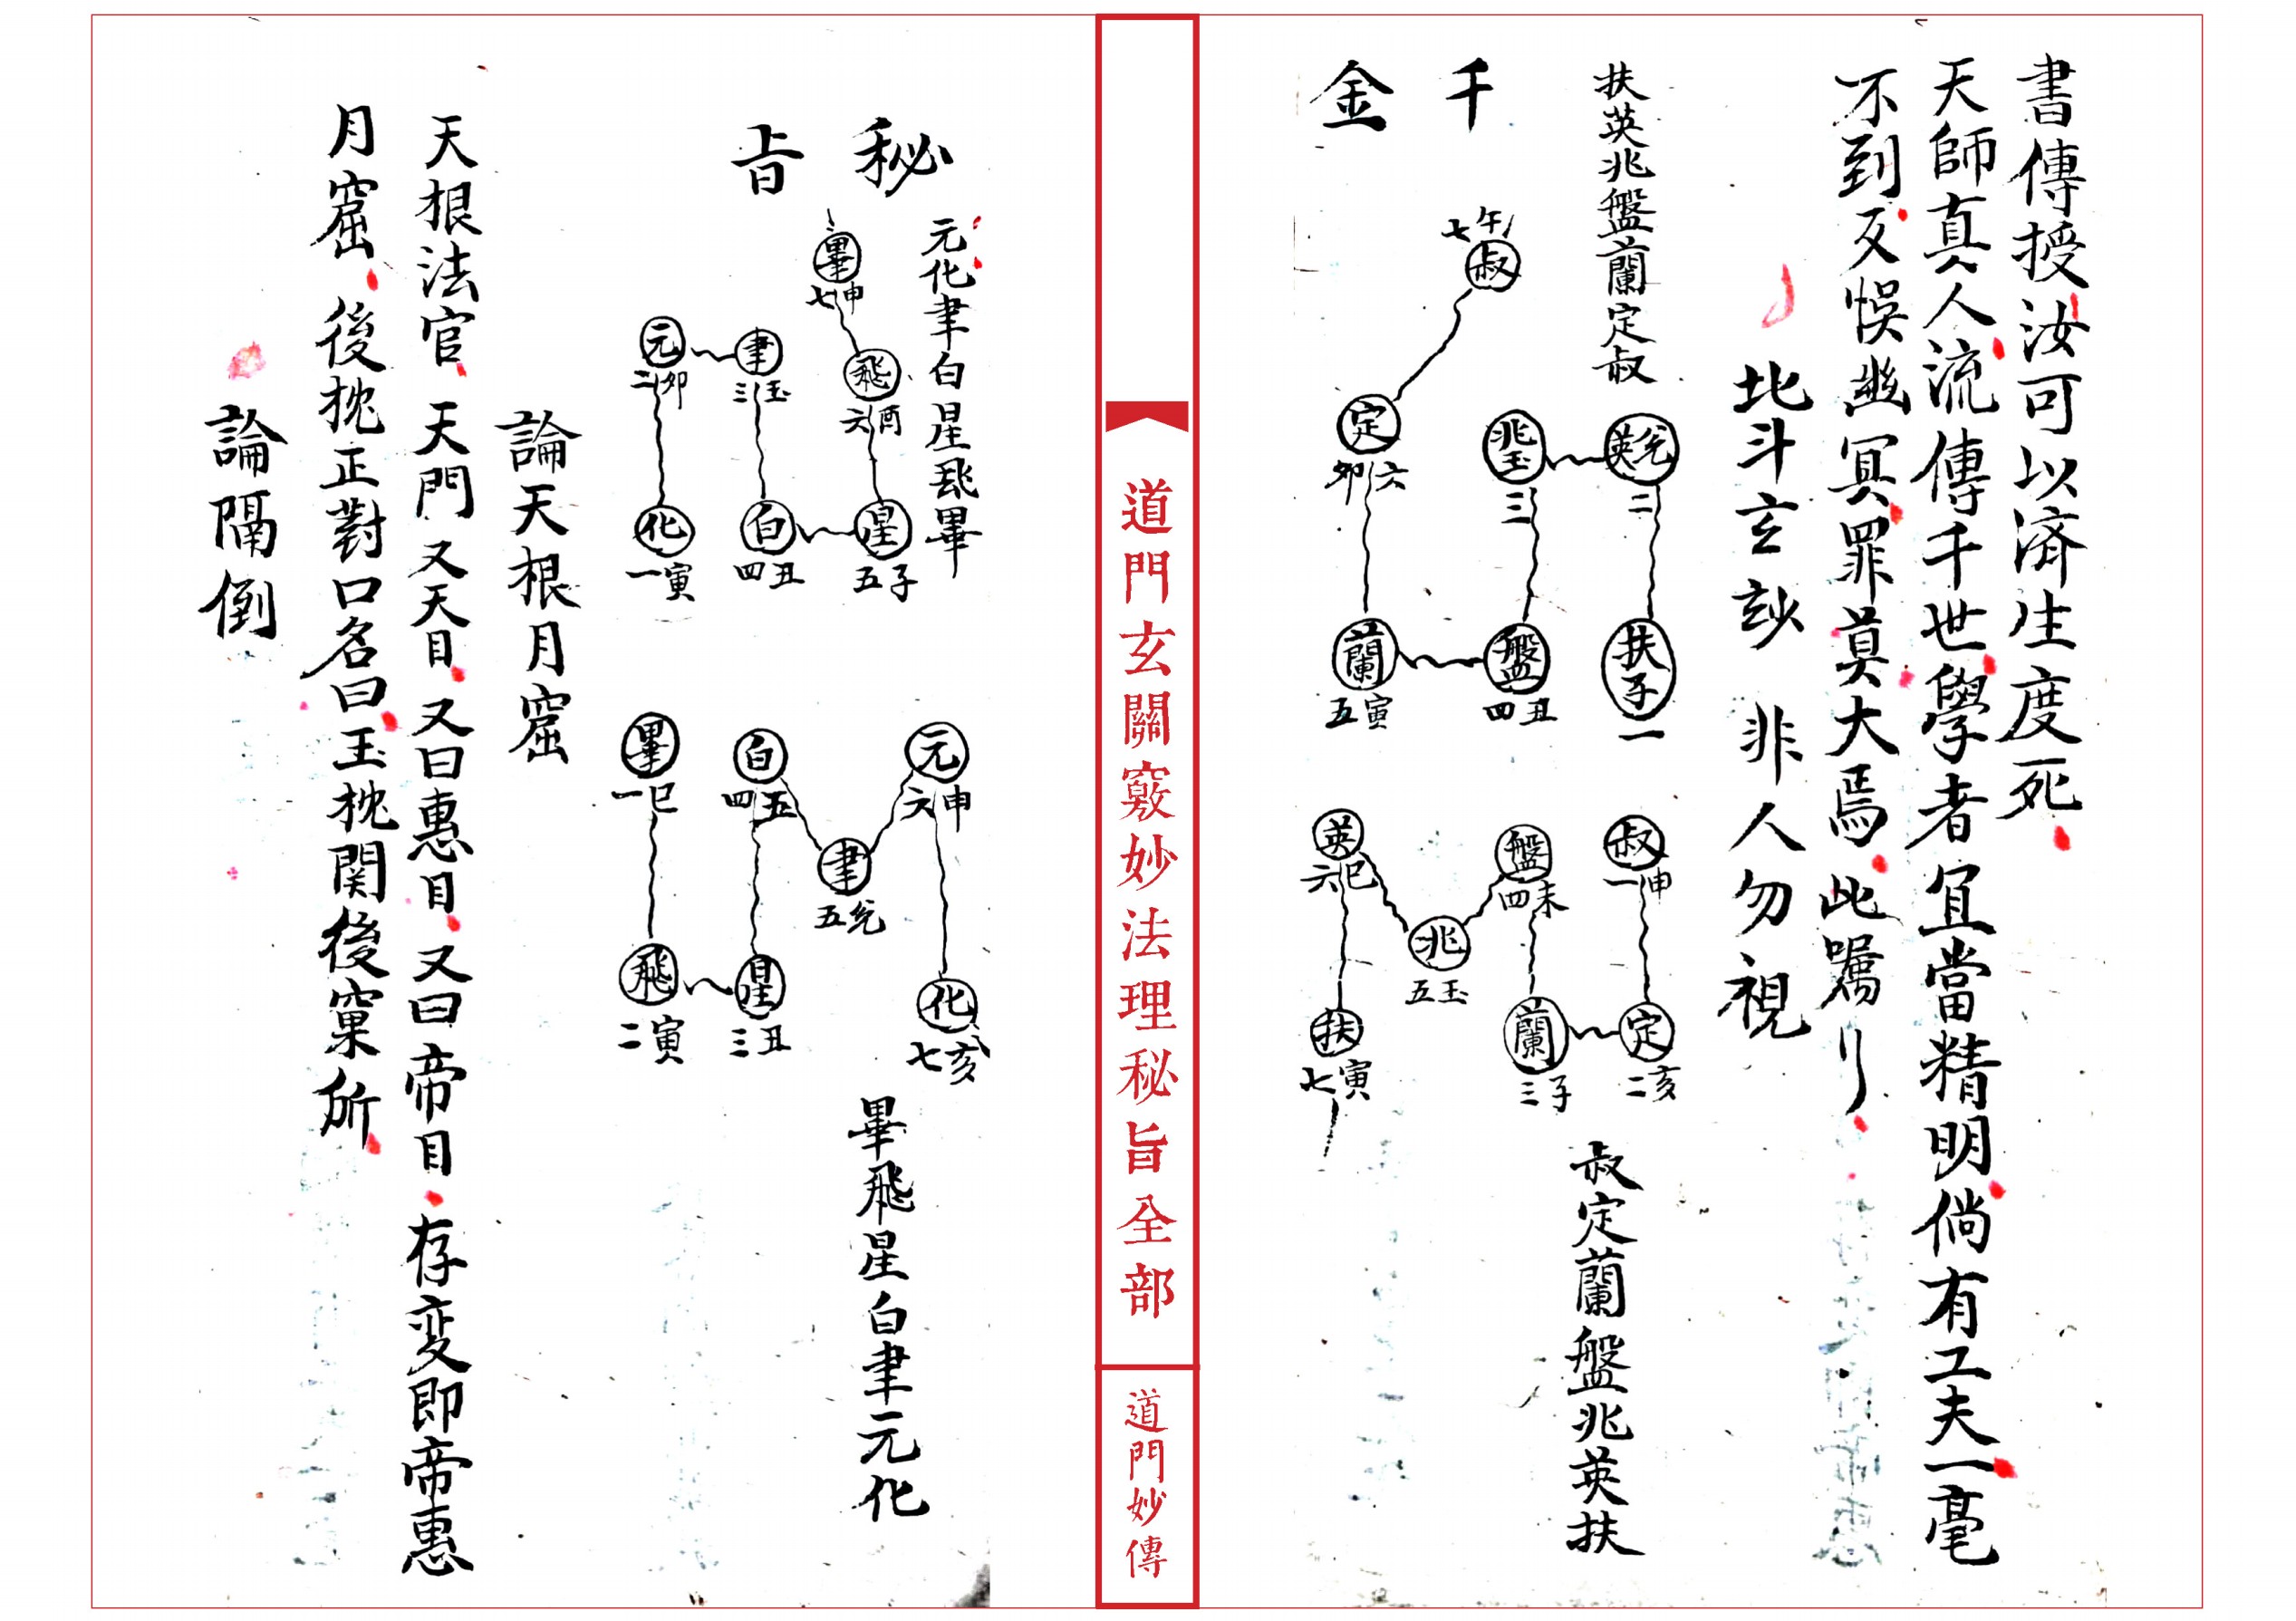 書傳授汝可以済生度死
天師真人流傳千世學者宜當精明倘有工夫一毫
不到反悞幽冥罪莫大焉此囑〻
北斗玄玅 非人勿視
扶英兆盤蘭定叔
千
金
午
七
叔
定
卯六
兆玉
三
英
二
蘭
五寅
盤
四丑
扶子
一
叔
一申
盤
四未
英
六巳
兆
五玉
定
二亥
蘭
三子
扶
七寅
叔定蘭盤兆英扶
道門玄關竅妙法理秘旨全部
道門妙傳
秘
旨
元化聿白星飛畢
畢
七申
飛
六酉
聿
三玉
元
二卯
星
五子
白
四丑
化
一寅
元
六申
白
四五
畢
一巳
聿
五
化
七亥
星
三丑
飛
二寅
畢飛星白聿元化
論天根月窟
天根法官天門又天目又曰惠目又曰帝目存変即帝惠
月窟後枕正對口名曰玉枕関後窠所
論隔倒